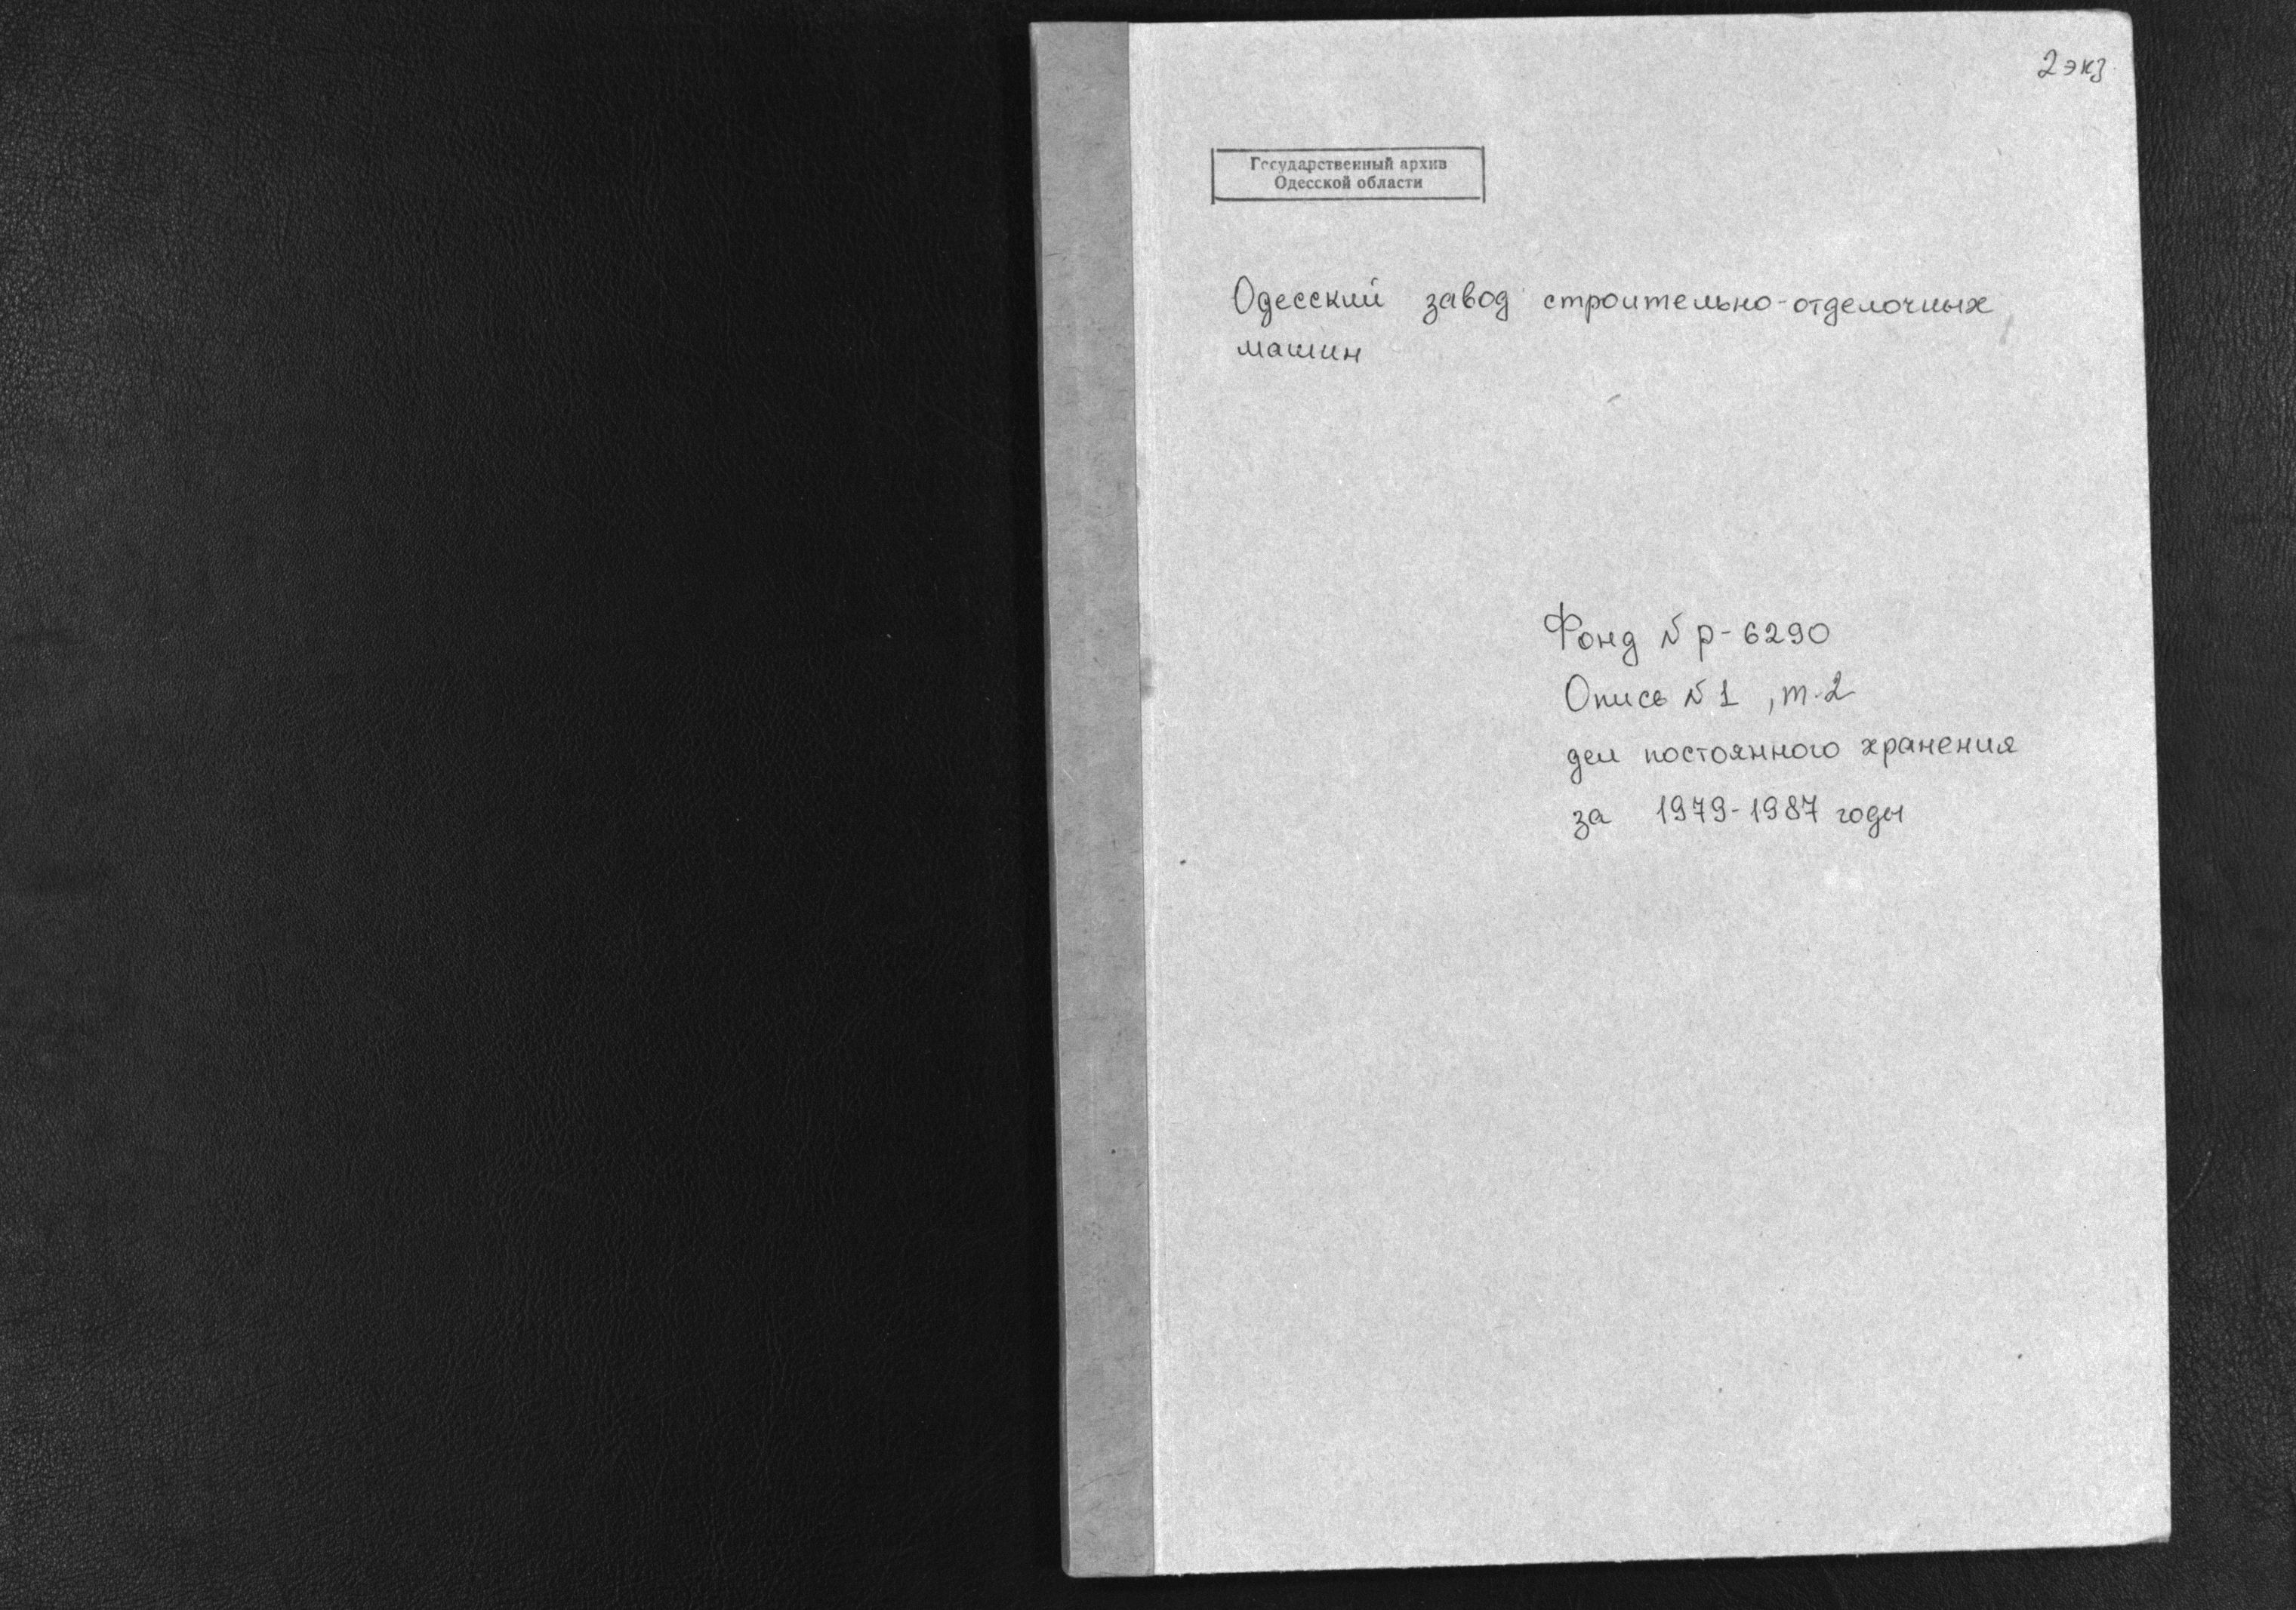 2 экз.
Государственный архив
Одесской области
Одесский завод строительно-отделочных
машин
Фонд № р-6290
Опись № 1 , т.2
дел постоянного хранения
за 1979-1987 годы